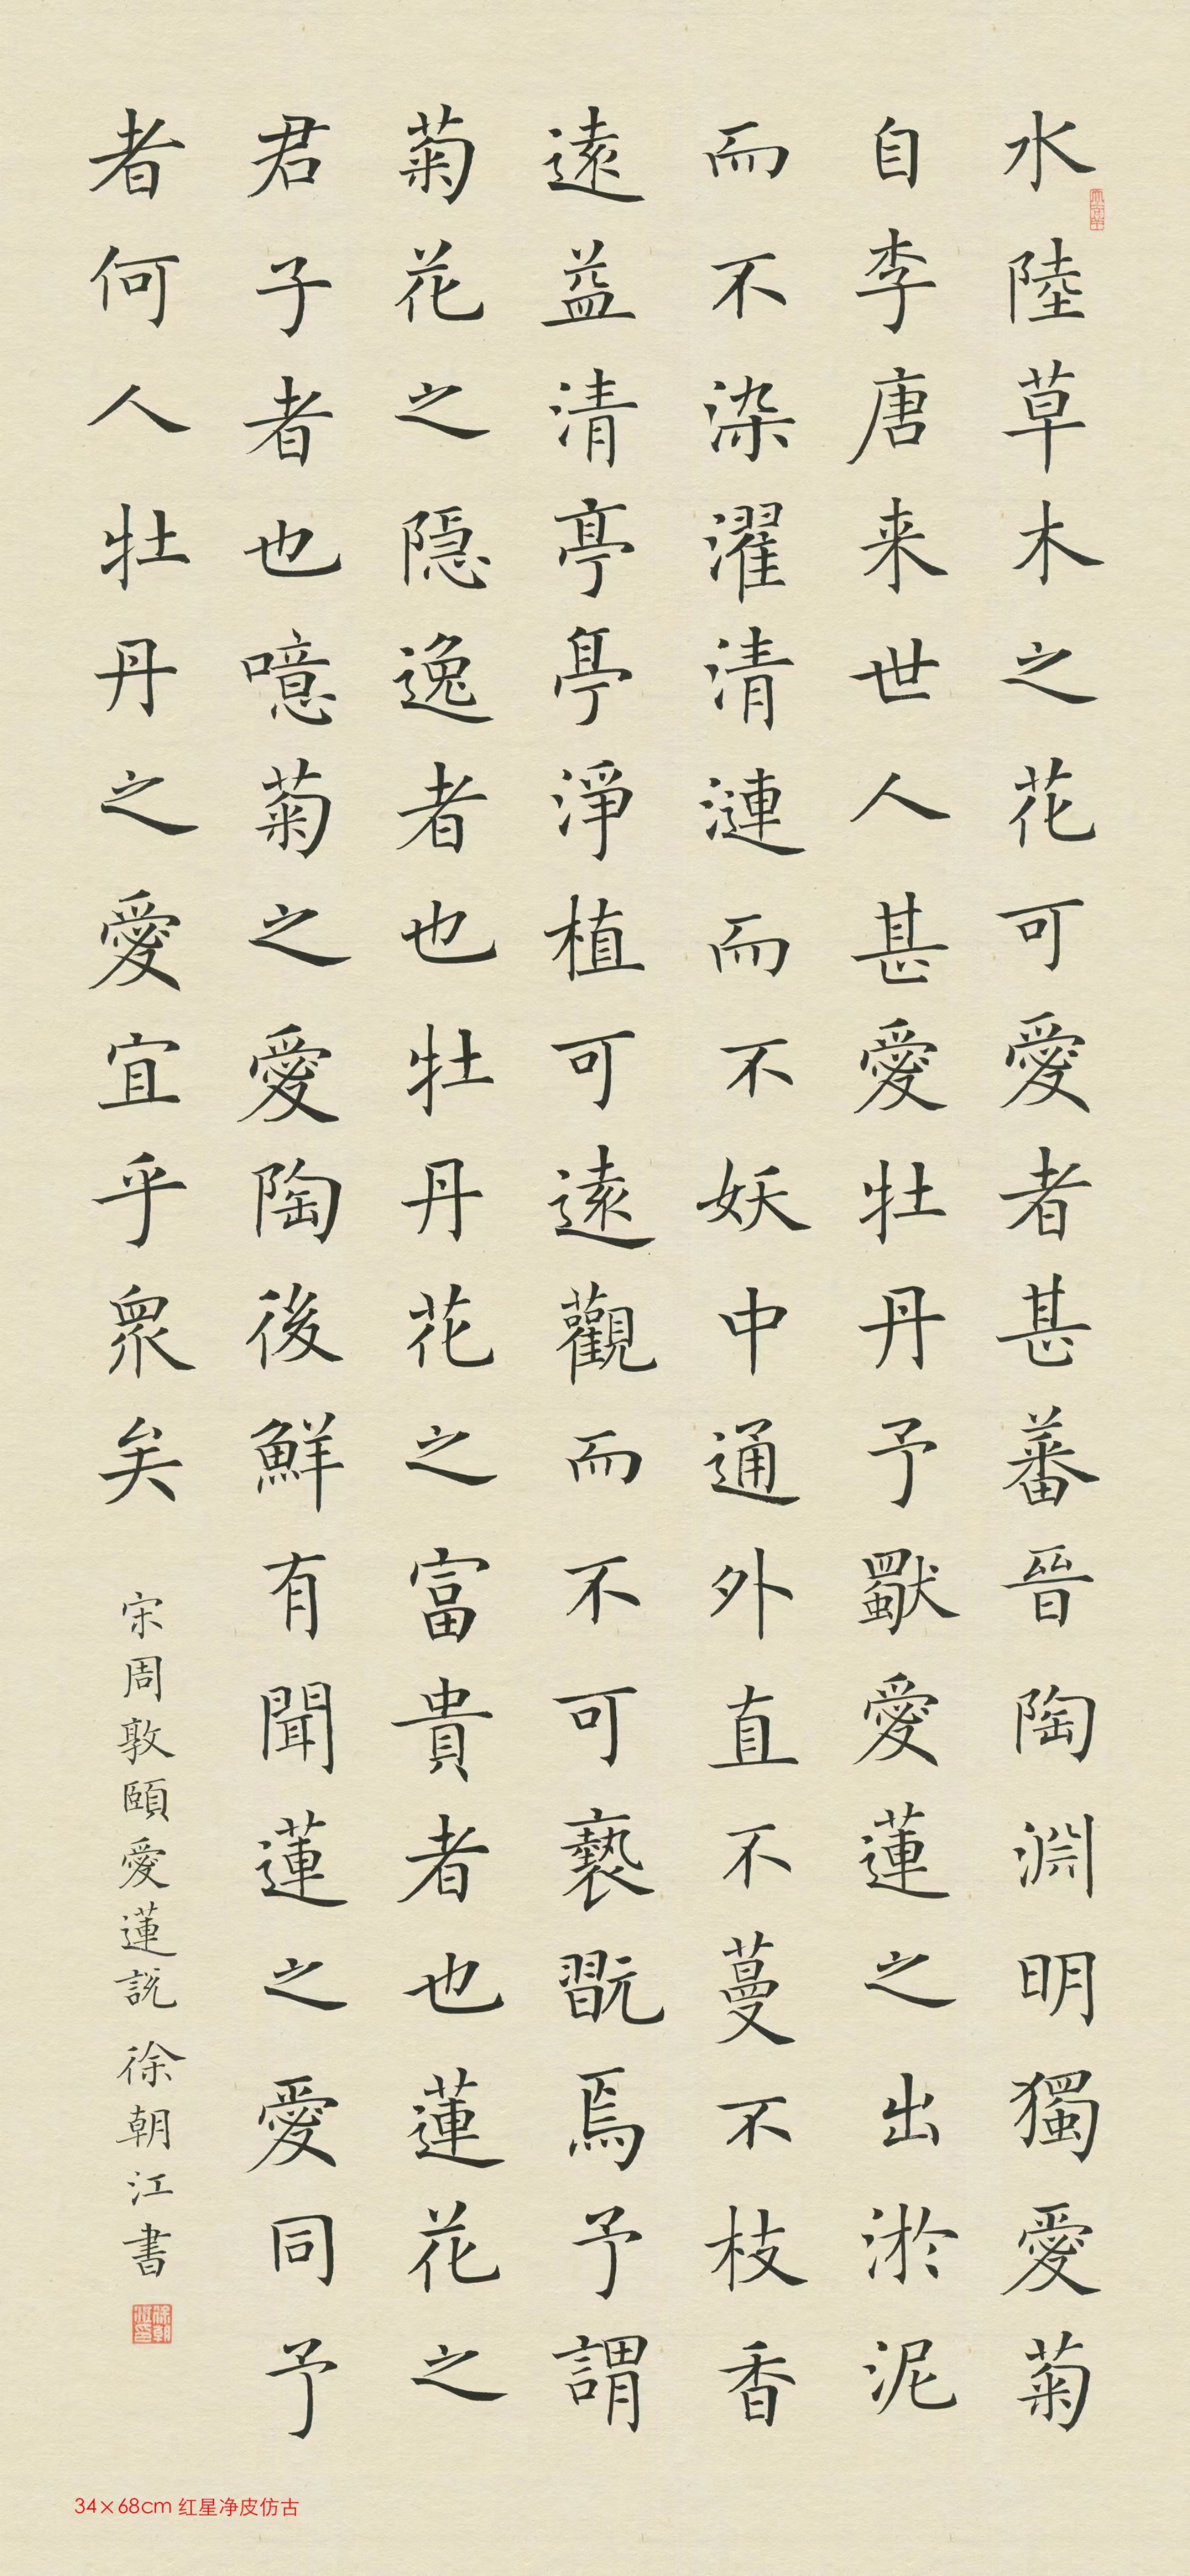 水陸草木之花可愛者甚蕃晉陶淵明獨愛菊
自李唐来世人甚愛牡丹予獸愛蓮之出淤泥
而不染濯清漣而不妖中通外直不蔓不枝香
遠益清亭亭淨植可遠觀而不可褻翫焉予謂
菊花之隠逸者也牡丹花之富貴者也蓮花之
君子者也噫菊之愛陶後鮮有聞蓮之愛同予
者何人牡丹之愛宜乎衆矣
宋周敦頤愛蓮説 徐朝江書
徐朝江印
34×68cm 红星净皮仿古